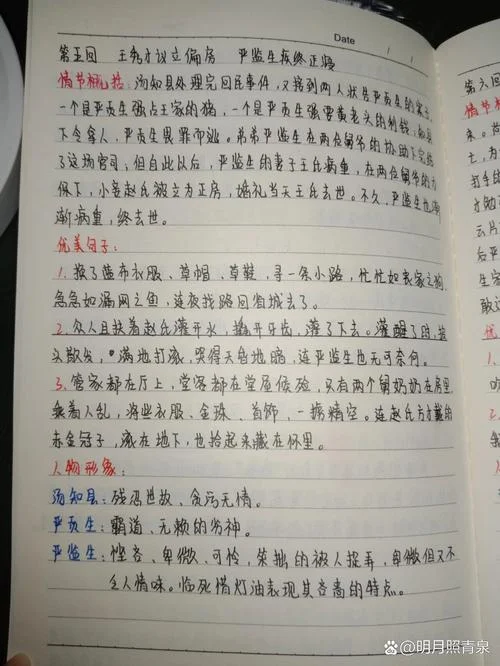 Date
第五回 王秀才议立偏房 严监生疾终正寝
情节概括：汤知县处理完回民事件，又接到两人状告严贡生的案子，
一个是严贡生强占王家的猪，一个是严贡生强要黄老头的利钱，知县
下令拿人，严贡生畏罪而逃。弟弟严监生在两位舅爷的协助下完结
了这场官司，但自此以后，严监生的妻子王氏病重，在两位舅爷的力
保下，小妾赵氏被立为正房，婚礼当天王氏去世。不久，严监生也渐
渐病重，终去世。
优美句子：
1. 换了蓝布衣服、草帽、草鞋，寻一条小路，忙忙如丧家之狗，
急急如漏网之鱼，连夜找路回省城去了。
2. 众人且扶着赵氏灌开水，撬开牙齿，灌了下去。灌醒了时，披
头散发，满地打滚，哭得天昏地暗，连严监生也无可奈何。
3. 管家都在厅上，堂客都在堂屋候殓，只有两个舅奶奶在房里，
乘着人乱，将些衣服、金珠、首饰，一掳精空。连赵氏方才戴的
赤金冠子，滚在地下，也拾起来藏在怀里。
人物形象：
汤知县：残忍世故、贪污无情。
严贡生：霸道、无赖的劣绅。
严监生：悭吝、卑微、可怜，笨拙的被人捉弄，卑微但又不
乏人情味。临死惜灯油表现其吝啬的特点。
第六回
情节
来。
亡，为
打手
才勉
云片
后严
生家
政
优
1.
2.
3.
@明月照青泉